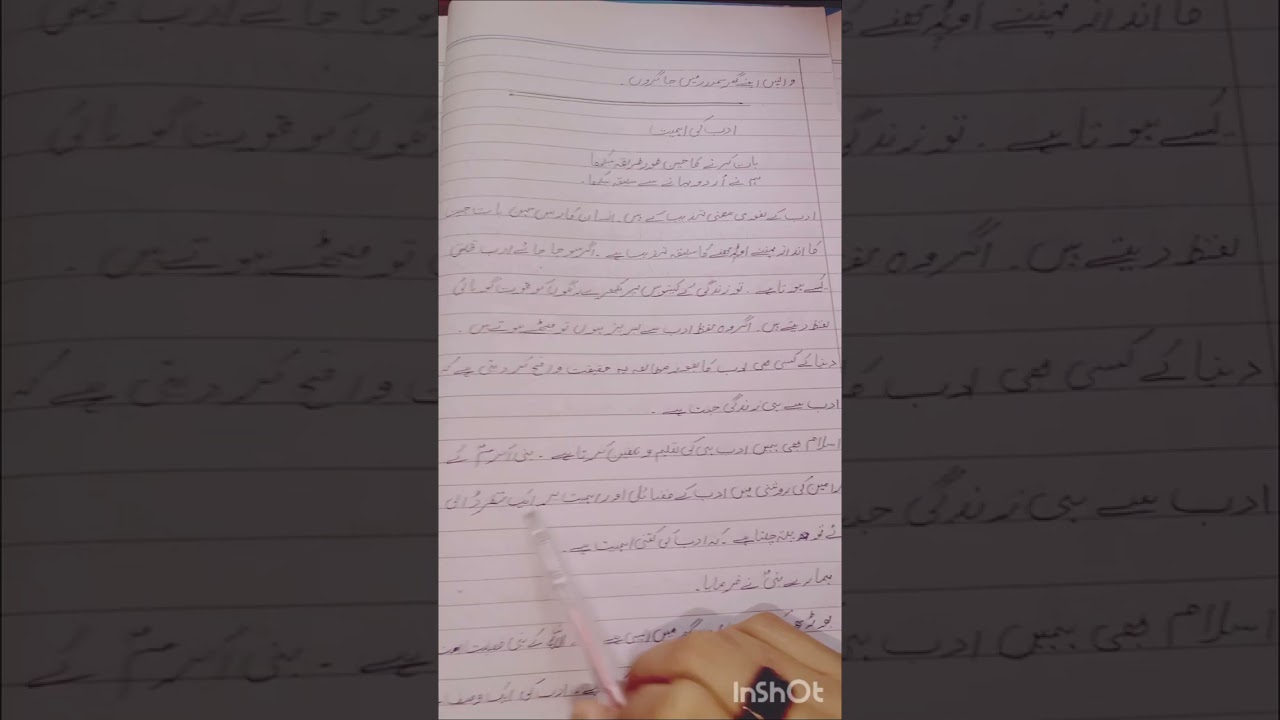 واپس اپنے گھر سمندر میں جا گروں۔
ادب کی اہمیت
بات کرنے کا حسیں طور طریقہ سیکھا
ہم نے اردو بہانے سے سلیقہ سیکھا۔
ادب کے لغوی معنی تہذیب کے ہیں۔ انسان کا رہن سہن بات چیت
کا انداز پہننے اوڑھنے کا سلیقہ تہذیب ہے۔ اگر سوچا جائے ادب
کسے ہوتا ہے۔ تو زندگی کے کینوس پر بکھرے رنگوں کو قوت گویائی
لفظ دیتے ہیں۔ اگر وہ لفظ ادب سے لبریز ہوں تو میٹھے ہوتے ہیں۔
دنیا کے کسی بھی ادب کا بغور مطالعہ یہ حقیقت واضح کر دیتی ہے کہ
ادب سے ہی زندگی ہے۔
اسلام بھی ہمیں ادب ہی کی تعلیم و کرتا ہے۔ نبی اکرمؐ کے
کی روشنی میں ادب کے فضائل اور اہمیت پر ایک نظر ڈالی
پتہ چلتا ہے۔ کہ ادب کی کتنی اہمیت ہے۔
ہمارے نبیؐ نے فرمایا۔
میں ایسی ہے
ادب کی ایک وصف
InShOt